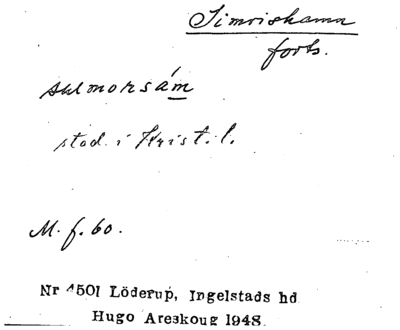 Simrishamn
forts.
stad i Krist. l.
M. f. 60.
Nr 4501 Löderup, Ingelstads hd
Hugo Areskoug 1948.